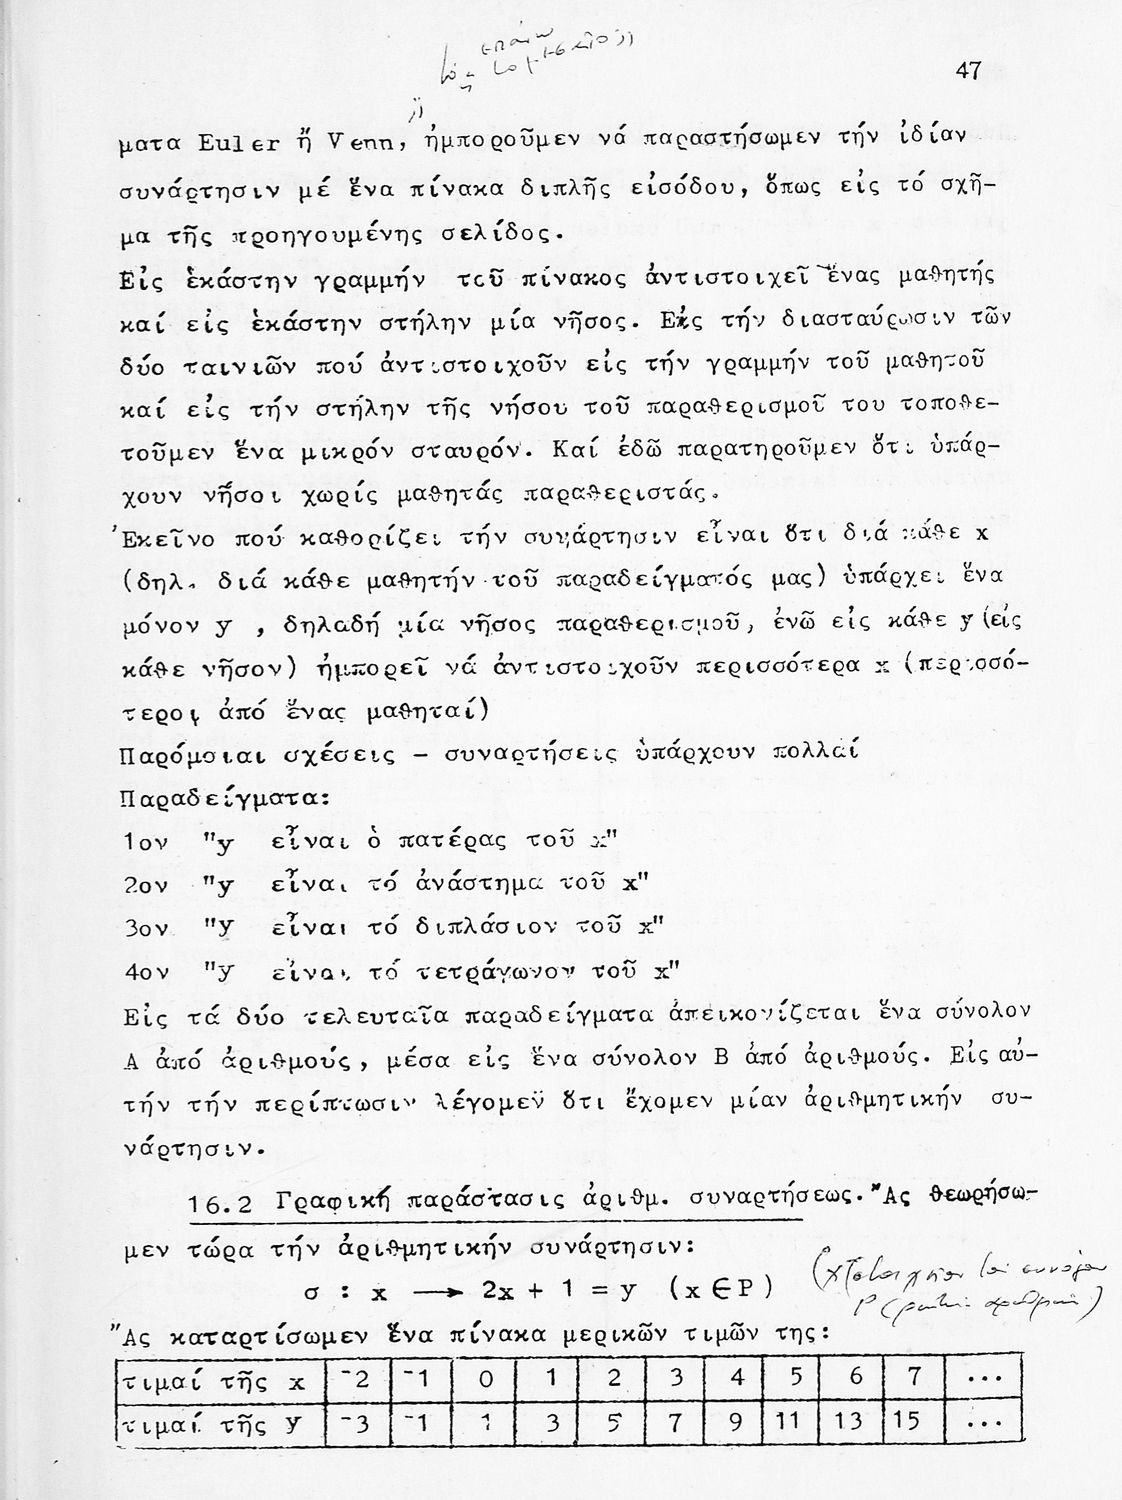 47
ματα Euler ἤ Venn, ἠμποροῦμεν νά παραστήσωμεν τήν ἰδίαν
συνάρτησιν μέ ἕνα πίνακα διπλῆς εἰσόδου, ὅπως εἰς τό σχῆ-
μα τῆς προηγουμένης σελίδος.
Εἰς ἑκάστην γραμμήν τοῦ πίνακος ἀντιστοιχεῖ ἕνας μαθητής
καί εἰς ἑκάστην στήλην μία νῆσος. Εἰς τήν διασταύρωσιν τῶν
δύο ταινιῶν πού ἀντιστοιχοῦν εἰς τήν γραμμήν τοῦ μαθητοῦ
καί εἰς τήν στήλην τῆς νήσου τοῦ παραθερισμοῦ του τοποθε-
τοῦμεν ἕνα μικρόν σταυρόν. Καί ἐδῶ παρατηροῦμεν ὅτι ὑπάρ-
χουν νῆσοι χωρίς μαθητάς παραθεριστάς.
Ἐκεῖνο πού καθορίζει τήν συνάρτησιν εἶναι ὅτι διά κάθε x
(δηλ. διά κάθε μαθητήν τοῦ παραδείγματός μας) ὑπάρχει ἕνα
μόνον y , δηλαδή μία νῆσος παραθερισμοῦ, ἐνῶ εἰς κάθε y (εἰς
κάθε νῆσον) ἠμπορεῖ νά ἀντιστοιχοῦν περισσότερα x (περισσό-
τεροι ἀπό ἕνας μαθηταί)
Παρόμοιαι σχέσεις - συναρτήσεις ὑπάρχουν πολλαί
Παραδείγματα:
1ον "y εἶναι ὁ πατέρας τοῦ x"
2ον "y εἶναι τό ἀνάστημα τοῦ x"
3ον "y εἶναι τό διπλάσιον τοῦ x"
4ον "y εἶναι τό τετράγωνον τοῦ x"
Εἰς τά δύο τελευταῖα παραδείγματα ἀπεικονίζεται ἕνα σύνολον
A ἀπό ἀριθμούς, μέσα εἰς ἕνα σύνολον B ἀπό ἀριθμούς. Εἰς αὐ-
τήν τήν περίπτωσιν λέγομεν ὅτι ἔχομεν μίαν ἀριθμητικήν συ-
νάρτησιν.
16.2 Γραφική παράστασις ἀριθμ. συναρτήσεως. Ἄς θεωρήσω-
μεν τώρα τήν ἀριθμητικήν συνάρτησιν:
σ : x ⟶ 2x + 1 = y (x ∈ P)
Ἄς καταρτίσωμεν ἕνα πίνακα μερικῶν τιμῶν της:
τιμαί τῆς x ⁻2 ⁻1 0 1 2 3 4 5 6 7 ...
τιμαί τῆς y ⁻3 ⁻1 1 3 5 7 9 11 13 15 ...